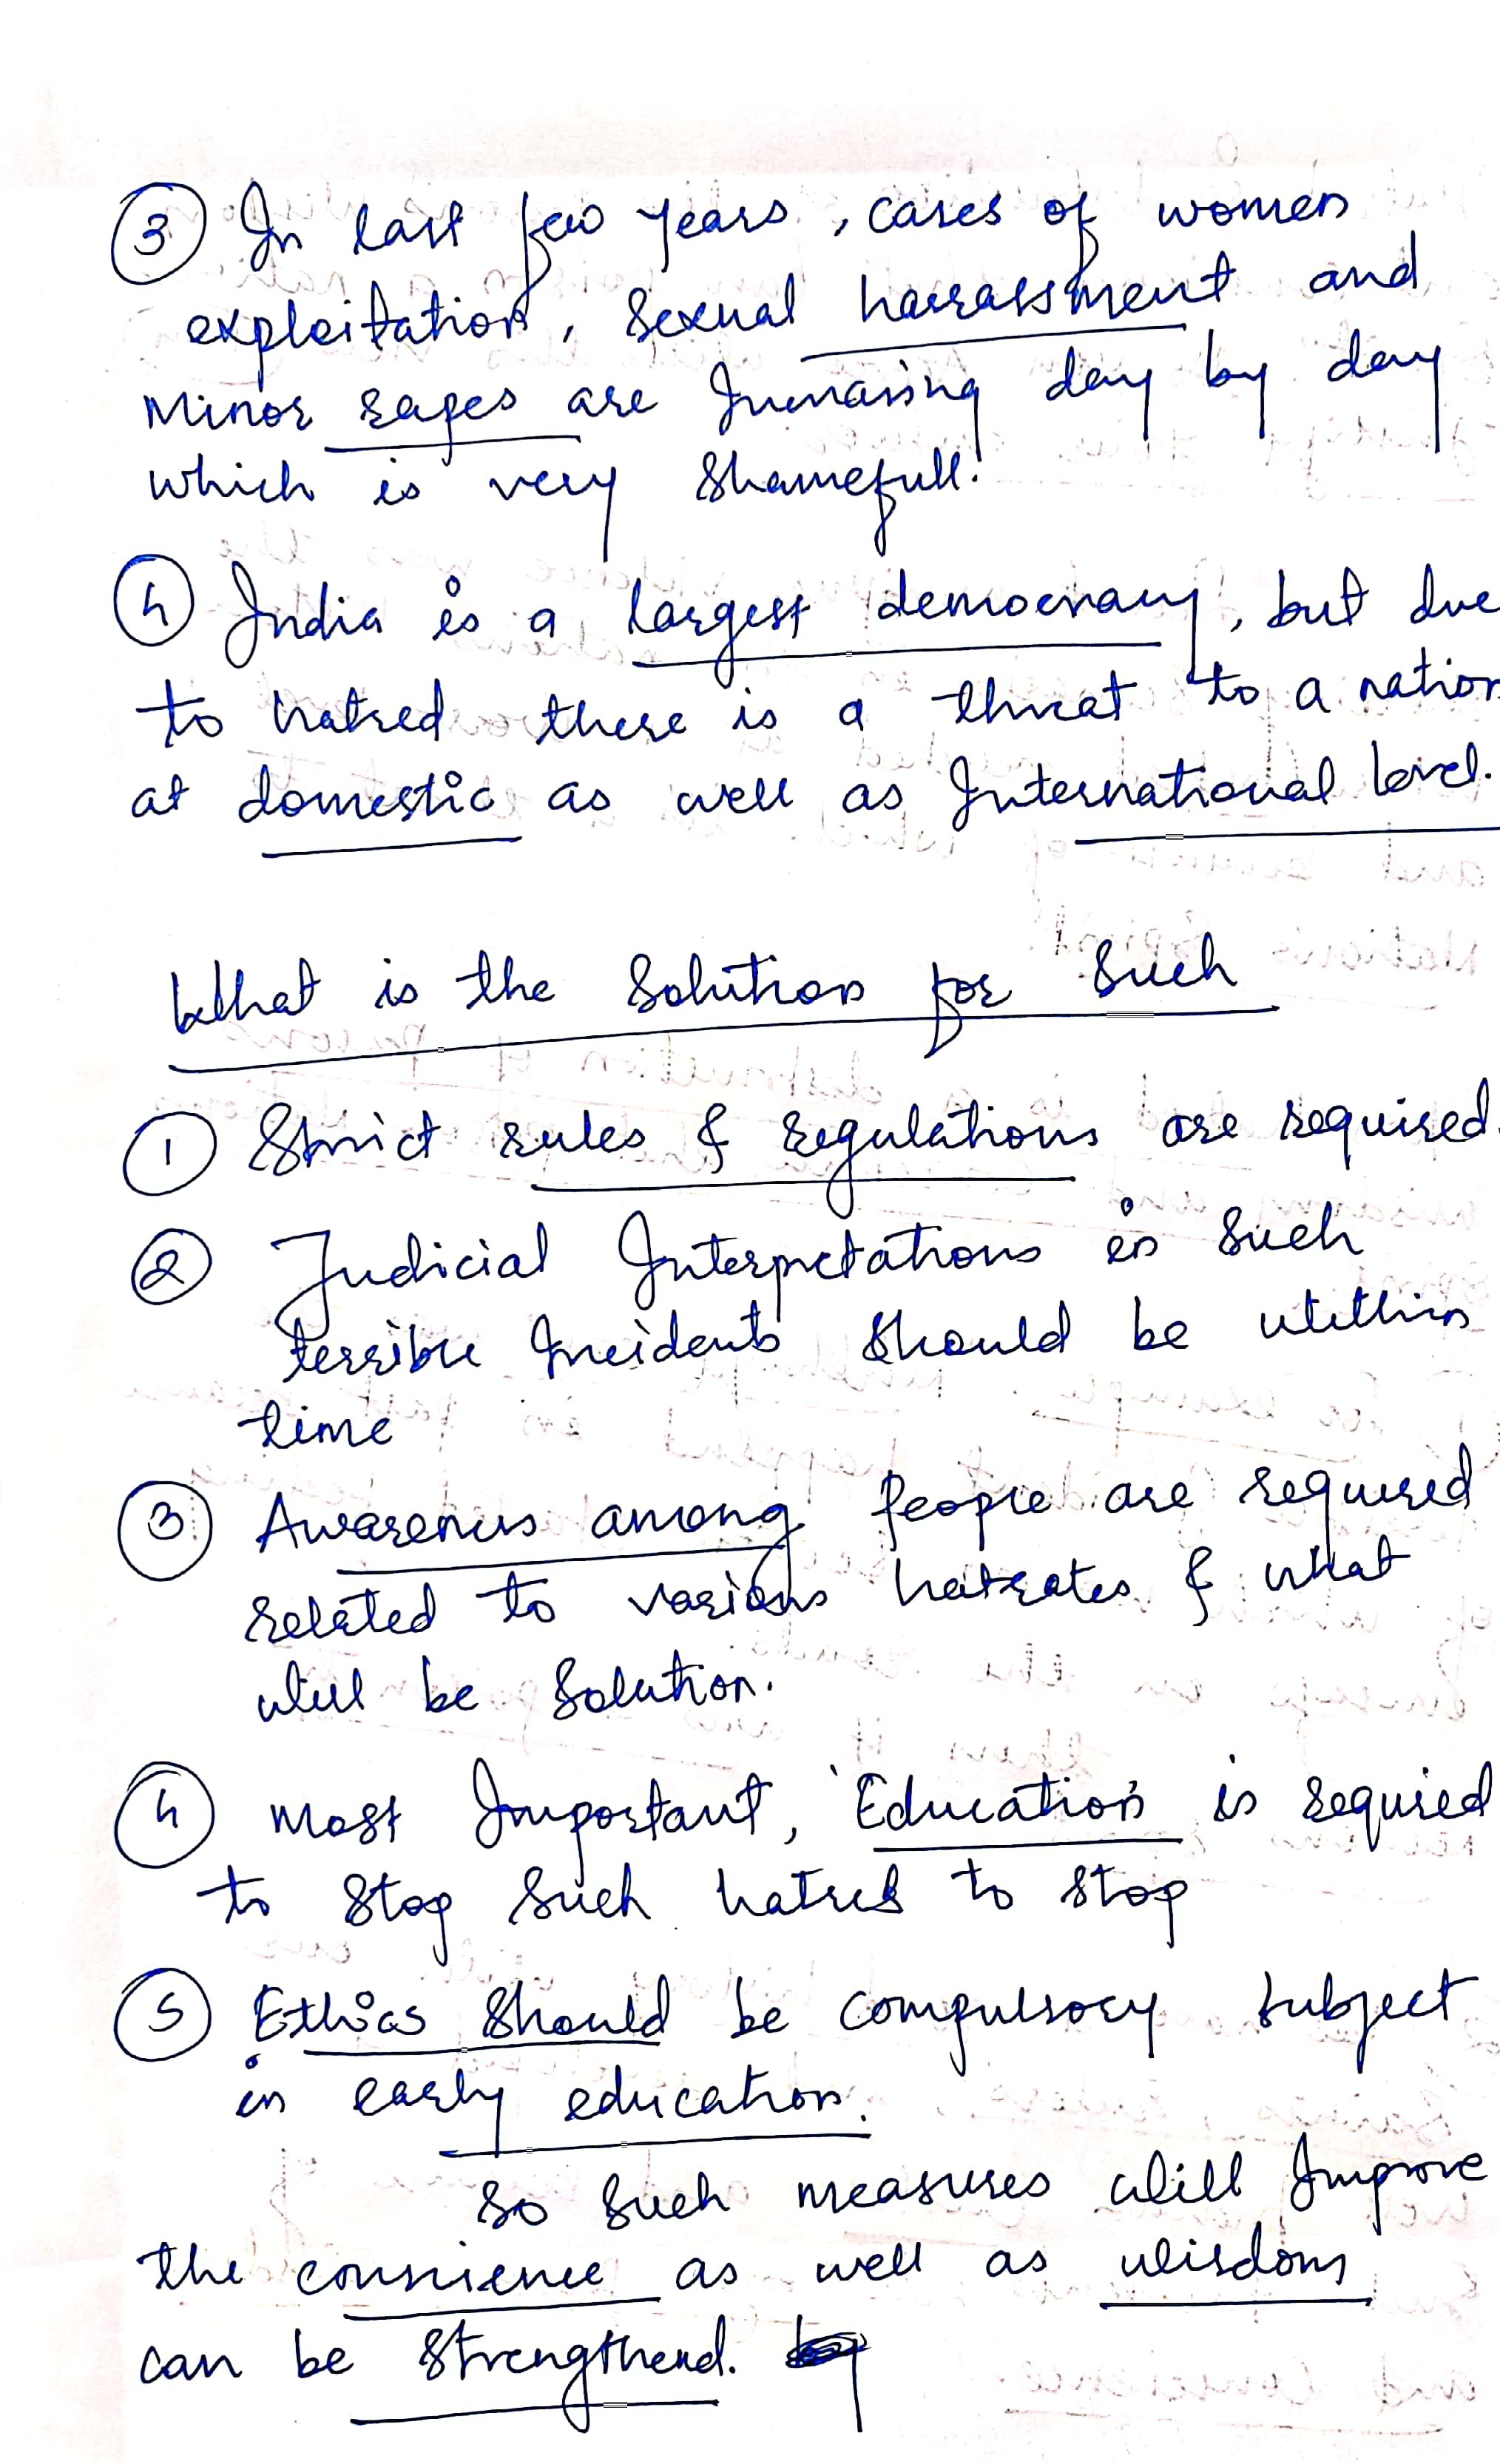 ③ In last few years, cases of women
exploitation, sexual harrassment and
Minor rapes are Increasing day by day
which is very shamefull!
④ India is a largest democracy, but due
to hatred there is a threat to a nation
at domestic as well as International level.
What is the Solution for such
① Strict rules & regulations are required.
② Judicial Interpretations in such
terrible Incidents should be within
time
③ Awareness among people are required
related to various hatrates & what
will be Solution.
④ Most Important, Education is required
to stop such hatred to stop
⑤ Ethics should be compulsory subject
in early education.
So such measures will Improve
the conscience as well as wisdom
can be strengthend.